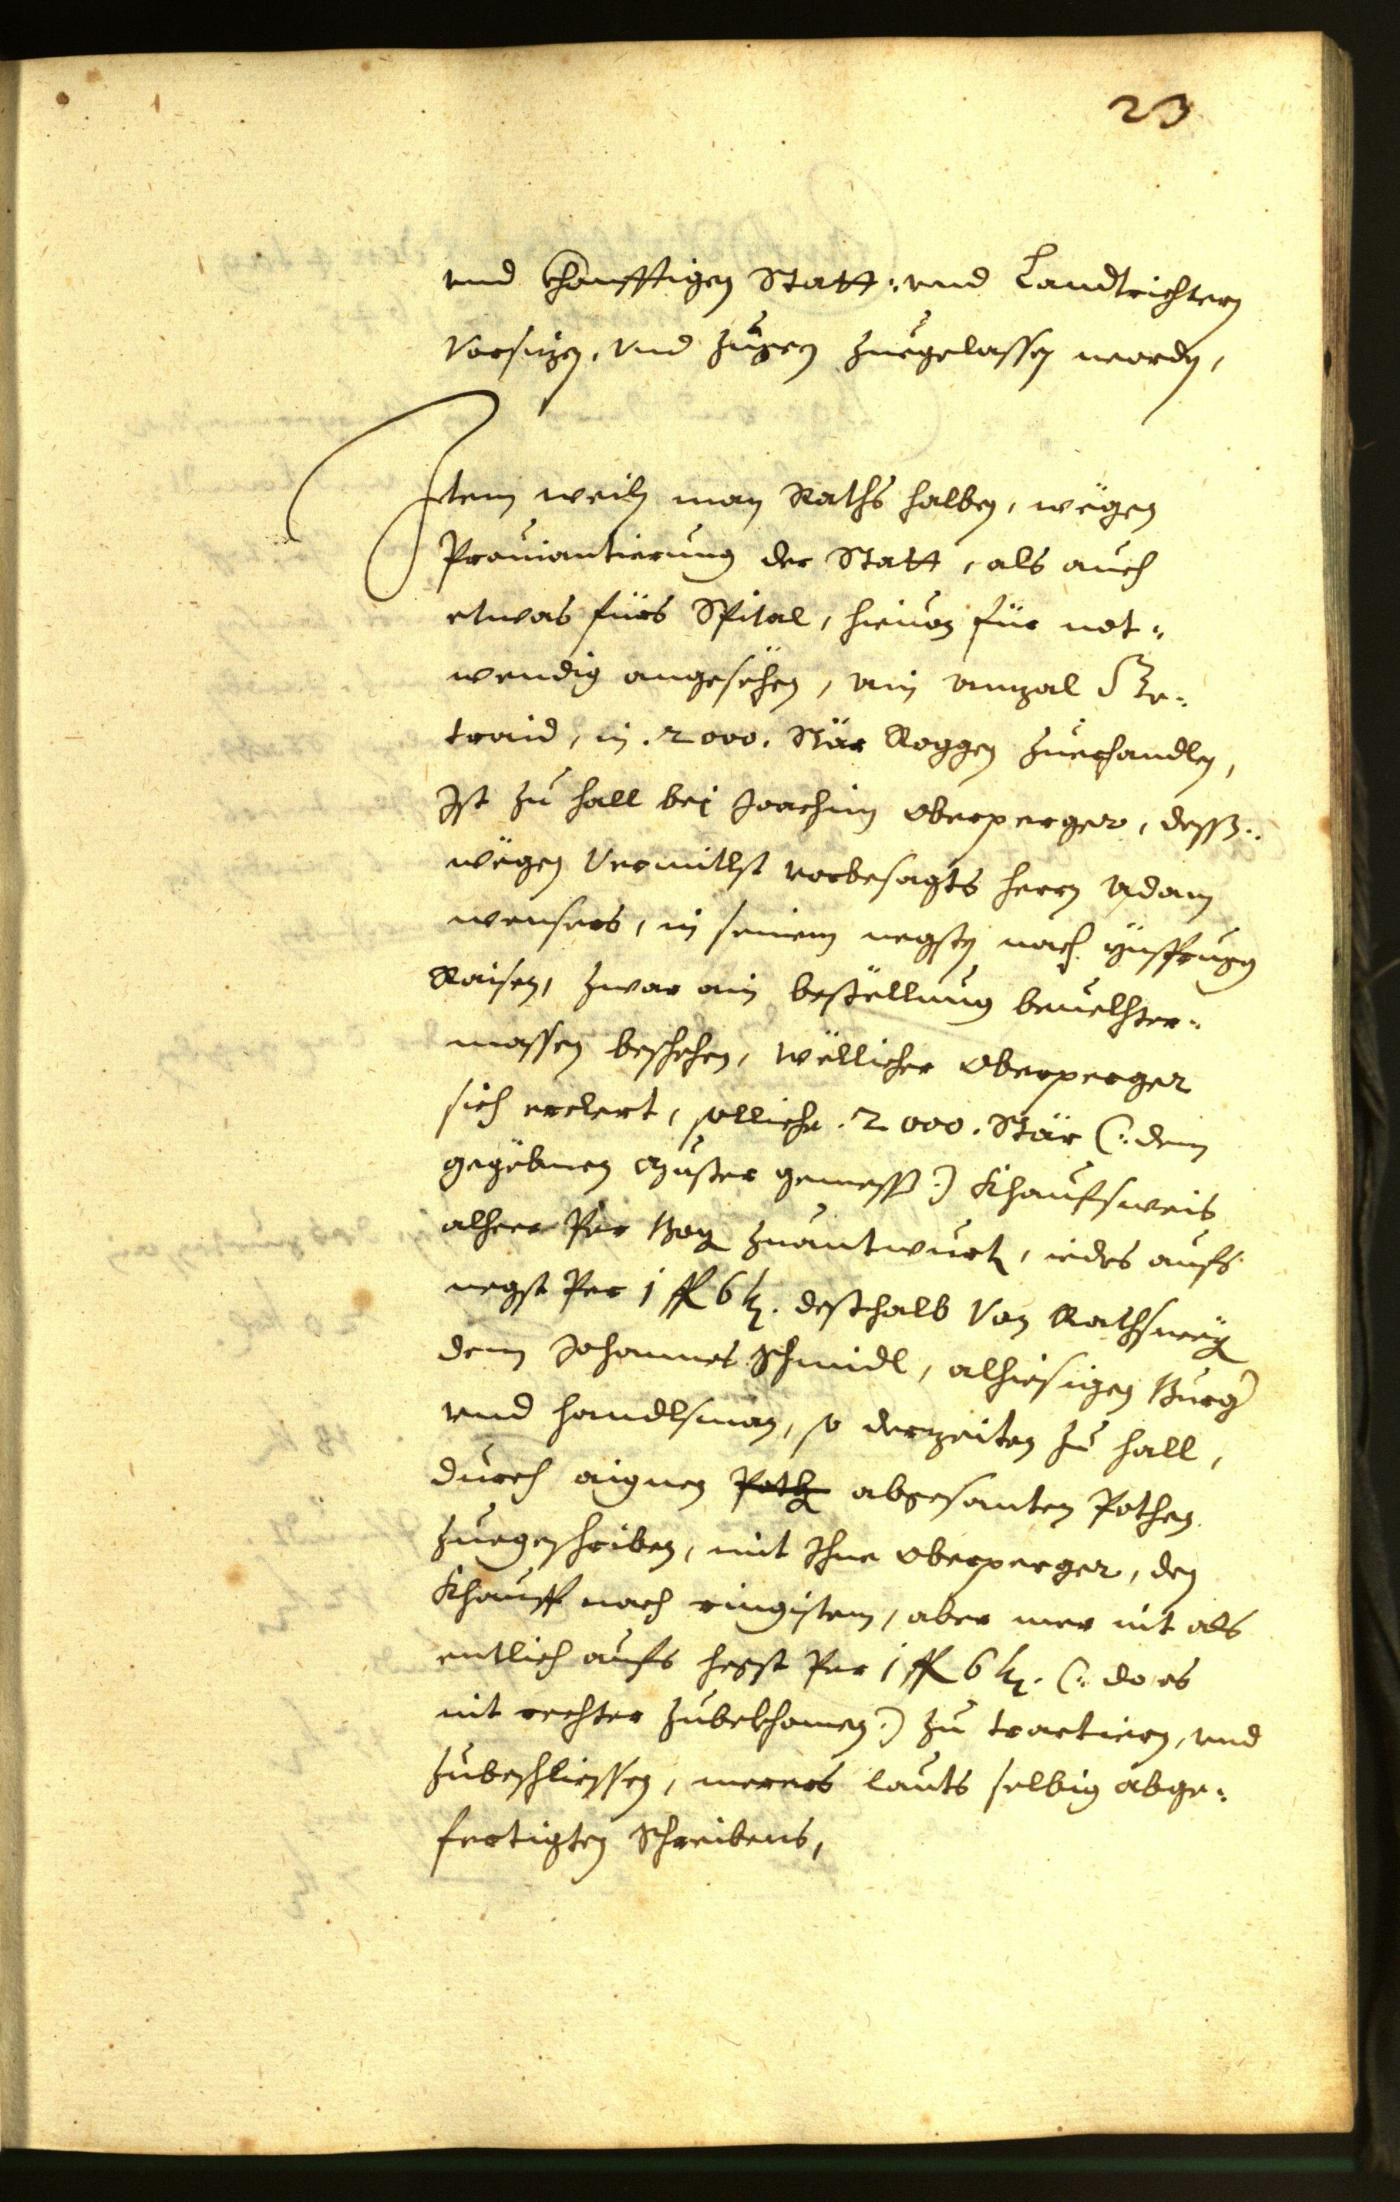 23
und khonfftigen Statt: und Landtrichtern
Vorsizen, und zuzen zuegelassen worden,
Item weiln man Raths halben, wegen
Proviantierung der Statt, als auch
etwas fürs Spital, hievon für not=
wendig angesehen, ain anzal Ge=
traid, in .2000. Stär Roggen zuerhandlen,
Ist zu Hall bei Joachim Obersperger, dess=
wegen Vermitlst vorbesagts herrn Adam
Wensers, in seinem negsten nach Ynsprugg
Raisen, zwar ain bestellung bevelhter=
massen beschehen, wöllicher Obersperger
sich erclert, solliche .2000. Stär (: dem
gegebnen Muster gemess :) Khaufsweis
alheer Per Bozen zuantwurten, iedes aufs
negst Per 1 fl 6 kr. desthalb Von Rathswegen
dem Johannes Schmidl, alhiesigen Burger
und handlsman, so derzeiten zu Hall,
durch aignen abgesanten Pothen
zuegeschriben, mit Ihne Obersperger, den
Khauff nach ringistem, aber mer nit als
entlich aufs hegst Per 1 fl 6 kr. (: do es
nit rechter zubekhomen :) zu tractiern, und
zubeschliessen, merers lauts selbig abge=
fertigten Schreibens,